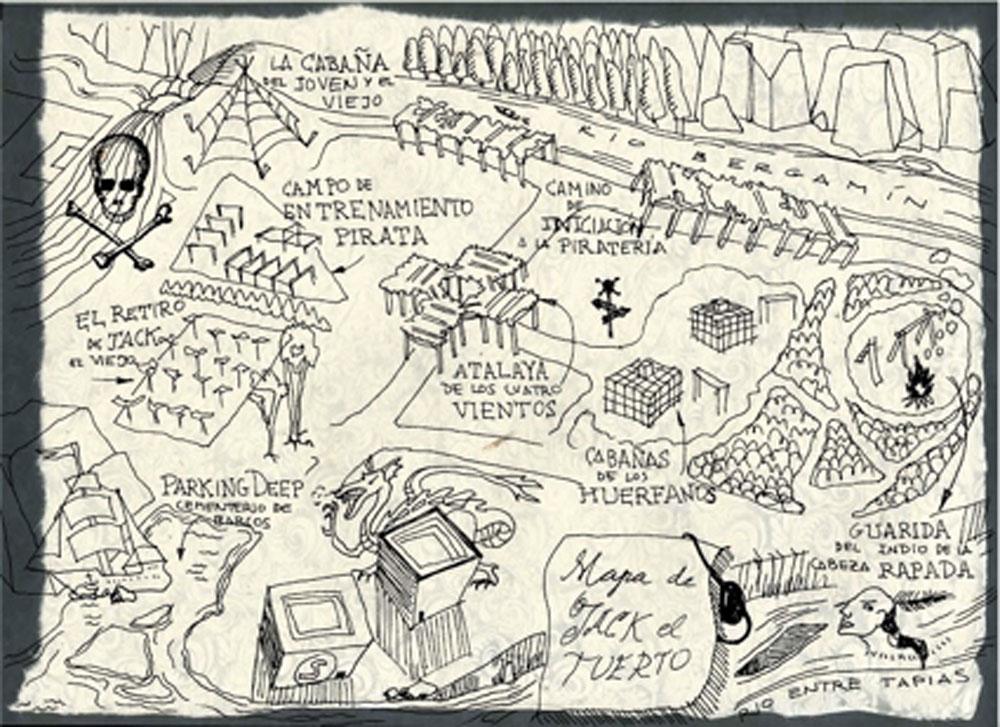 LA CABAÑA
DEL JOVEN Y EL
VIEJO
RIO BERGAMÍN
CAMPO DE
ENTRENAMIENTO
PIRATA
CAMINO
DE
INICIACIÓN
A LA PIRATERÍA
EL RETIRO
DE JACK
EL VIEJO
ATALAYA
DE LOS CUATRO
VIENTOS
CABAÑAS
DE LOS
HUERFANOS
PARKING DEEP
CEMENTERIO DE
BARCOS
GUARIDA
DEL INDIO DE LA
CABEZA RAPADA
Mapa de
JACK el
TUERTO
S
RIO ENTRE TAPIAS